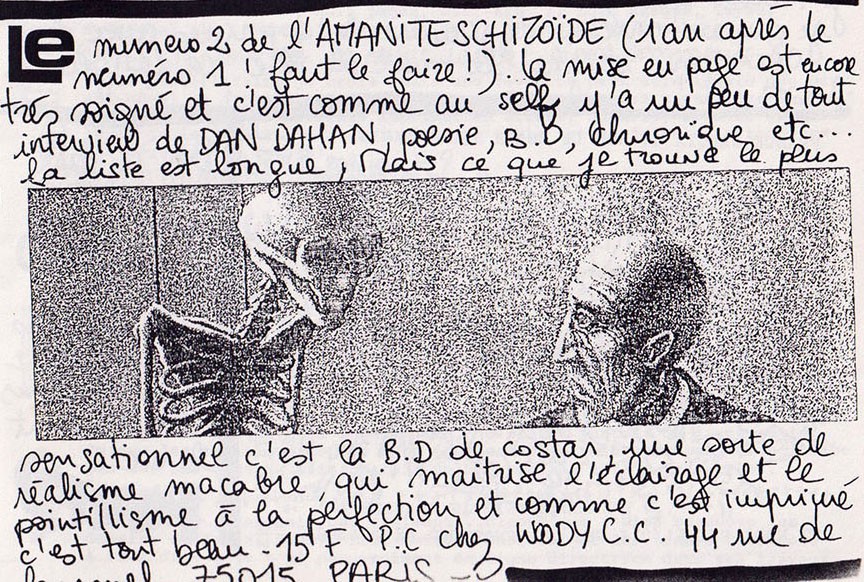 Le numero 2 de l'AMANITE SCHIZOÏDE (1 an après le
numéro 1 ! faut le faire !). la mise en page est encore
très soigné et c'est comme au self y'a un peu de tout
interview de DAN DAHAN, poesie, B.D, chronique etc...
la liste est longue, Mais ce que je trouve le plus
sensationnel c'est la B.D de costar, une sorte de
réalisme macabre, qui maitrise l'éclairage et le
pointillisme à la perfection et comme c'est imprimé
c'est tout beau. 15 F P.C chez WOODY C.C. 44 rue de
75015 PARIS